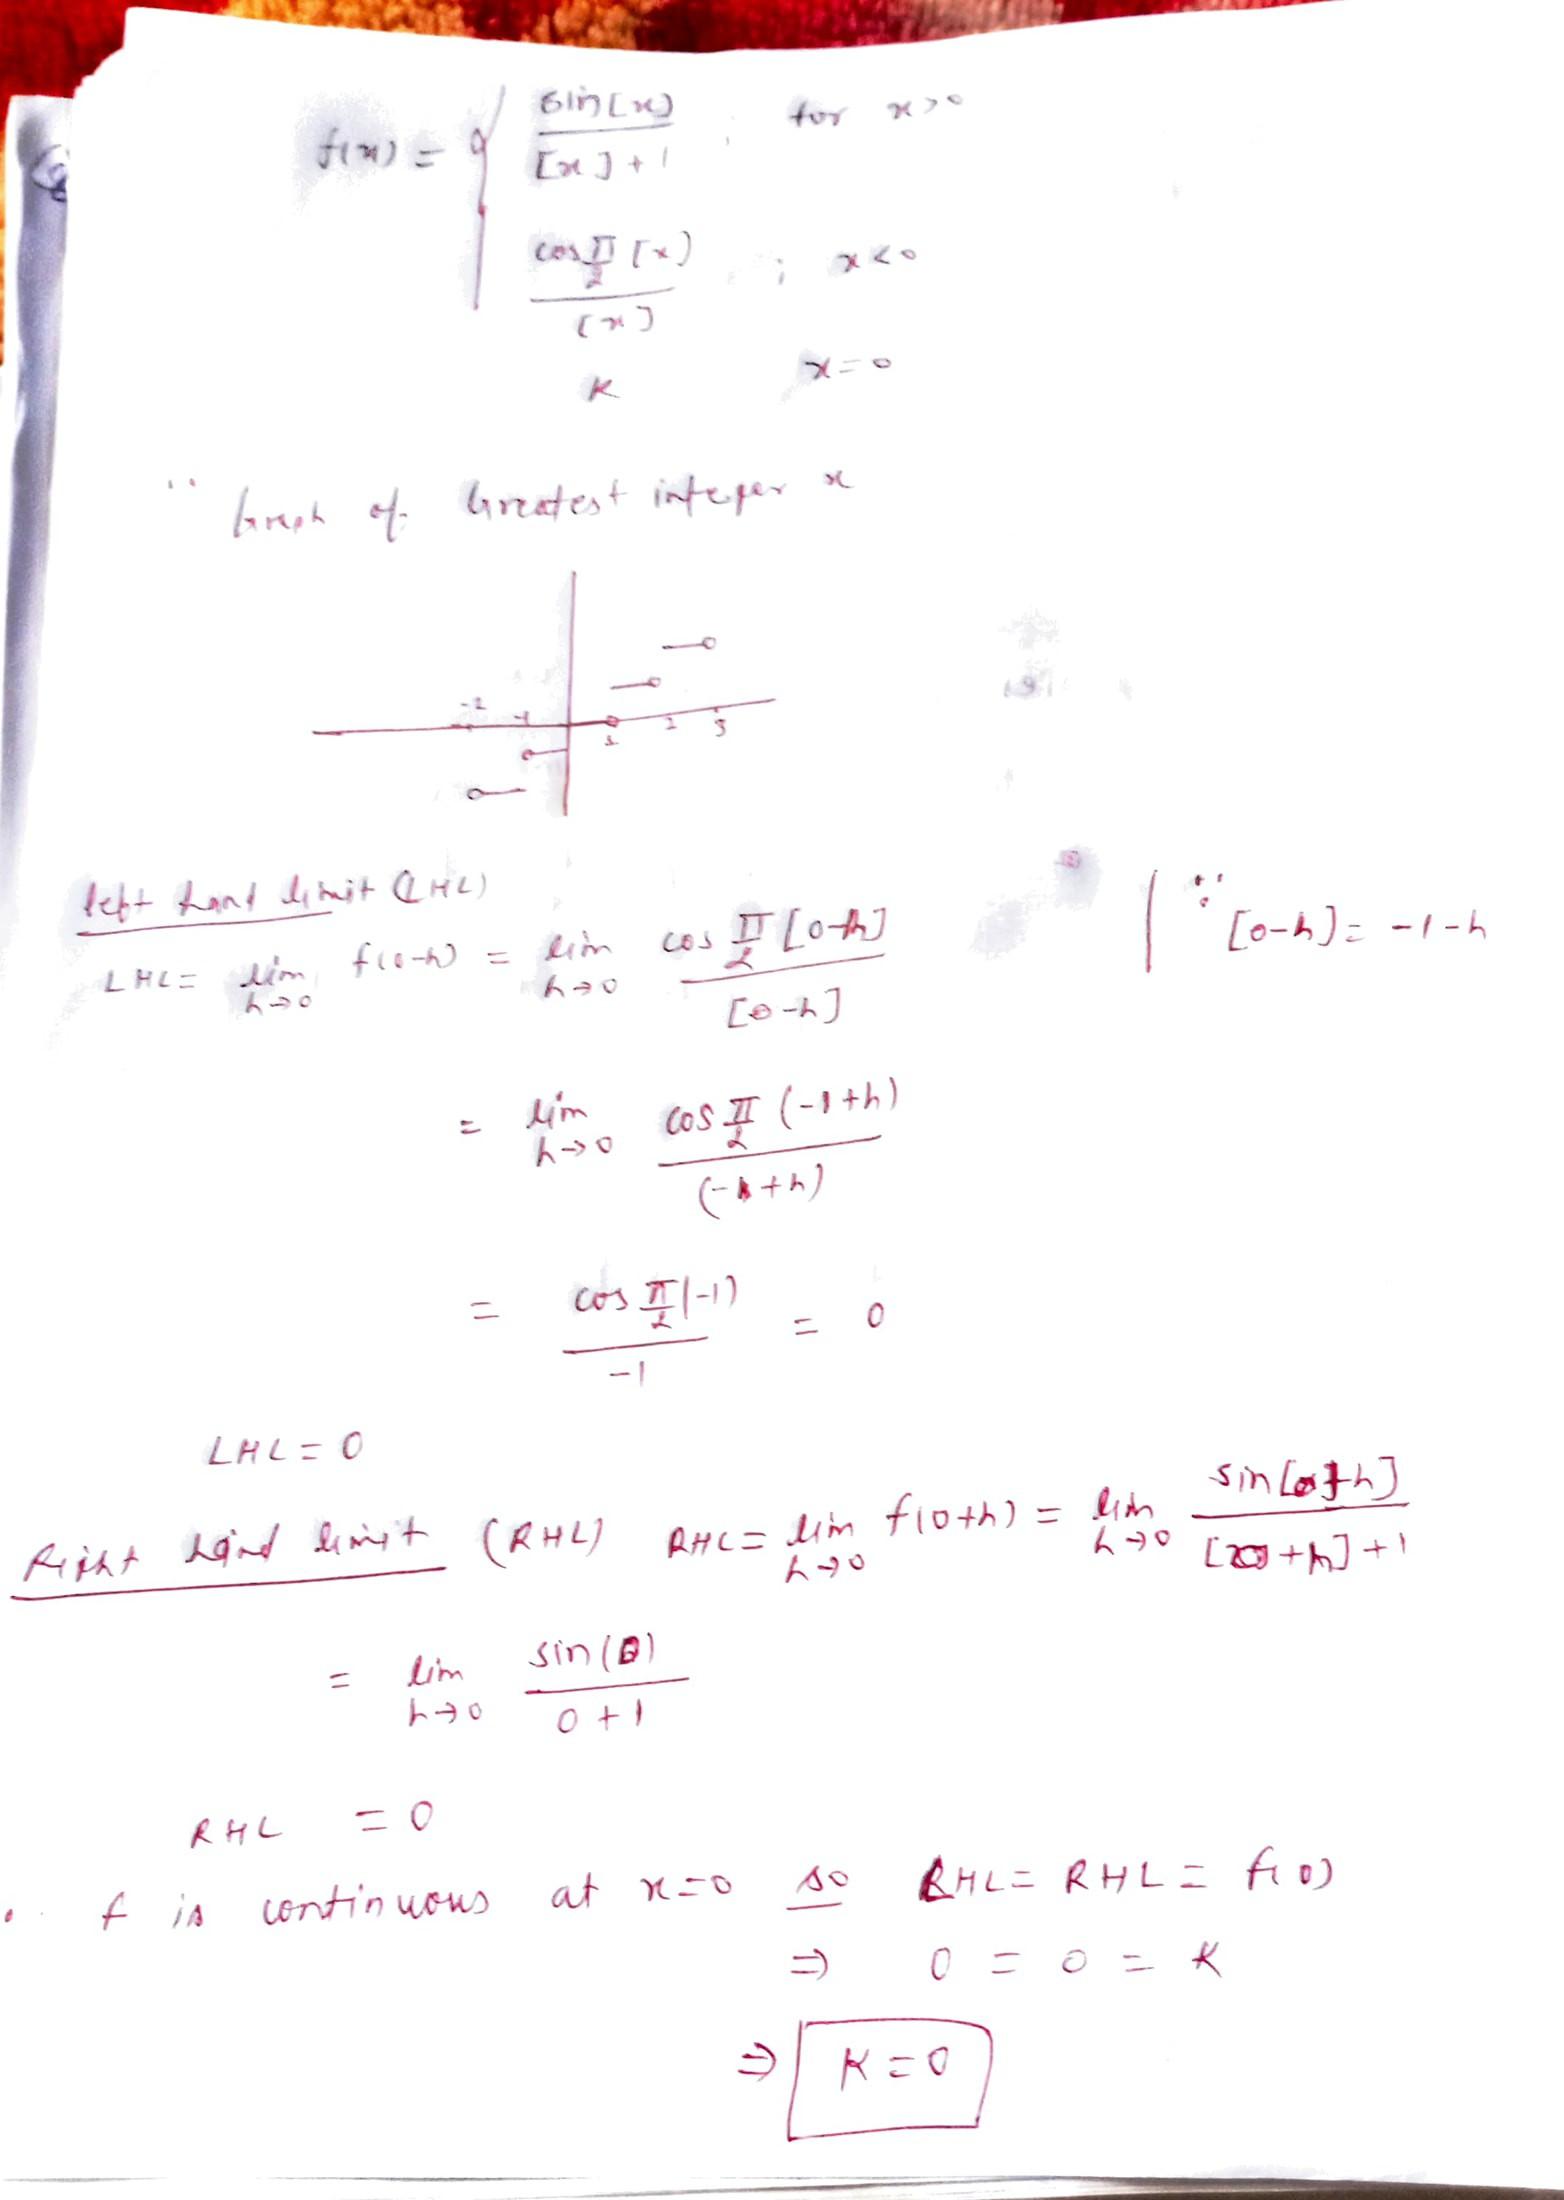 f(x) = { sin[x] / [x]+1 ; for x>0
cos π/2 [x) / [x] ; x<0
K x=0
∵ Graph of Greatest integer x
-2 -1 1 2 3
left hand limit (LHL)
LHL = lim h→0 f(0-h) = lim h→0 cos π/2 [0-h] / [0-h] | ∵ [0-h] = -1-h
= lim h→0 cos π/2 (-1+h) / (-1+h)
= cos π/2 (-1) / -1 = 0
LHL = 0
Right hand limit (RHL) RHL = lim h→0 f(0+h) = lim h→0 sin[0+h] / [0+h]+1
= lim h→0 sin(0) / 0+1
RHL = 0
∵ f is continuous at x=0 so LHL = RHL = f(0)
⇒ 0 = 0 = K
⇒ K = 0